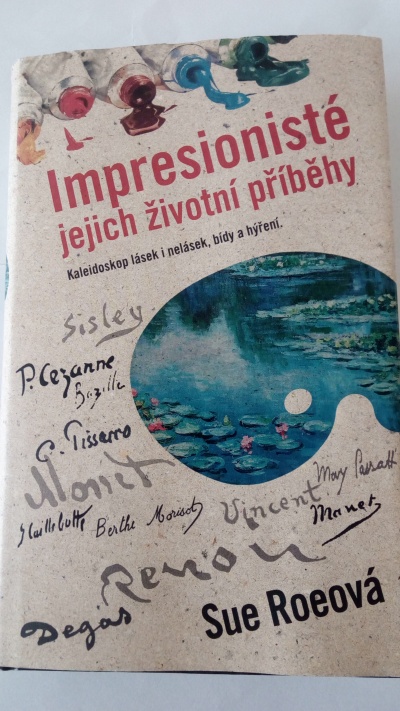 Impresionisté
jejich životní příběhy
Kaleidoskop lásek i nelásek, bídy a hýření.
Sisley
P. Cezanne
Bazille
C. Pissarro
Monet
Mary Cassatt
Vincent
G Caillebotte
Berthe Morisot
Manet
Renoir
Degas
Sue Roeová